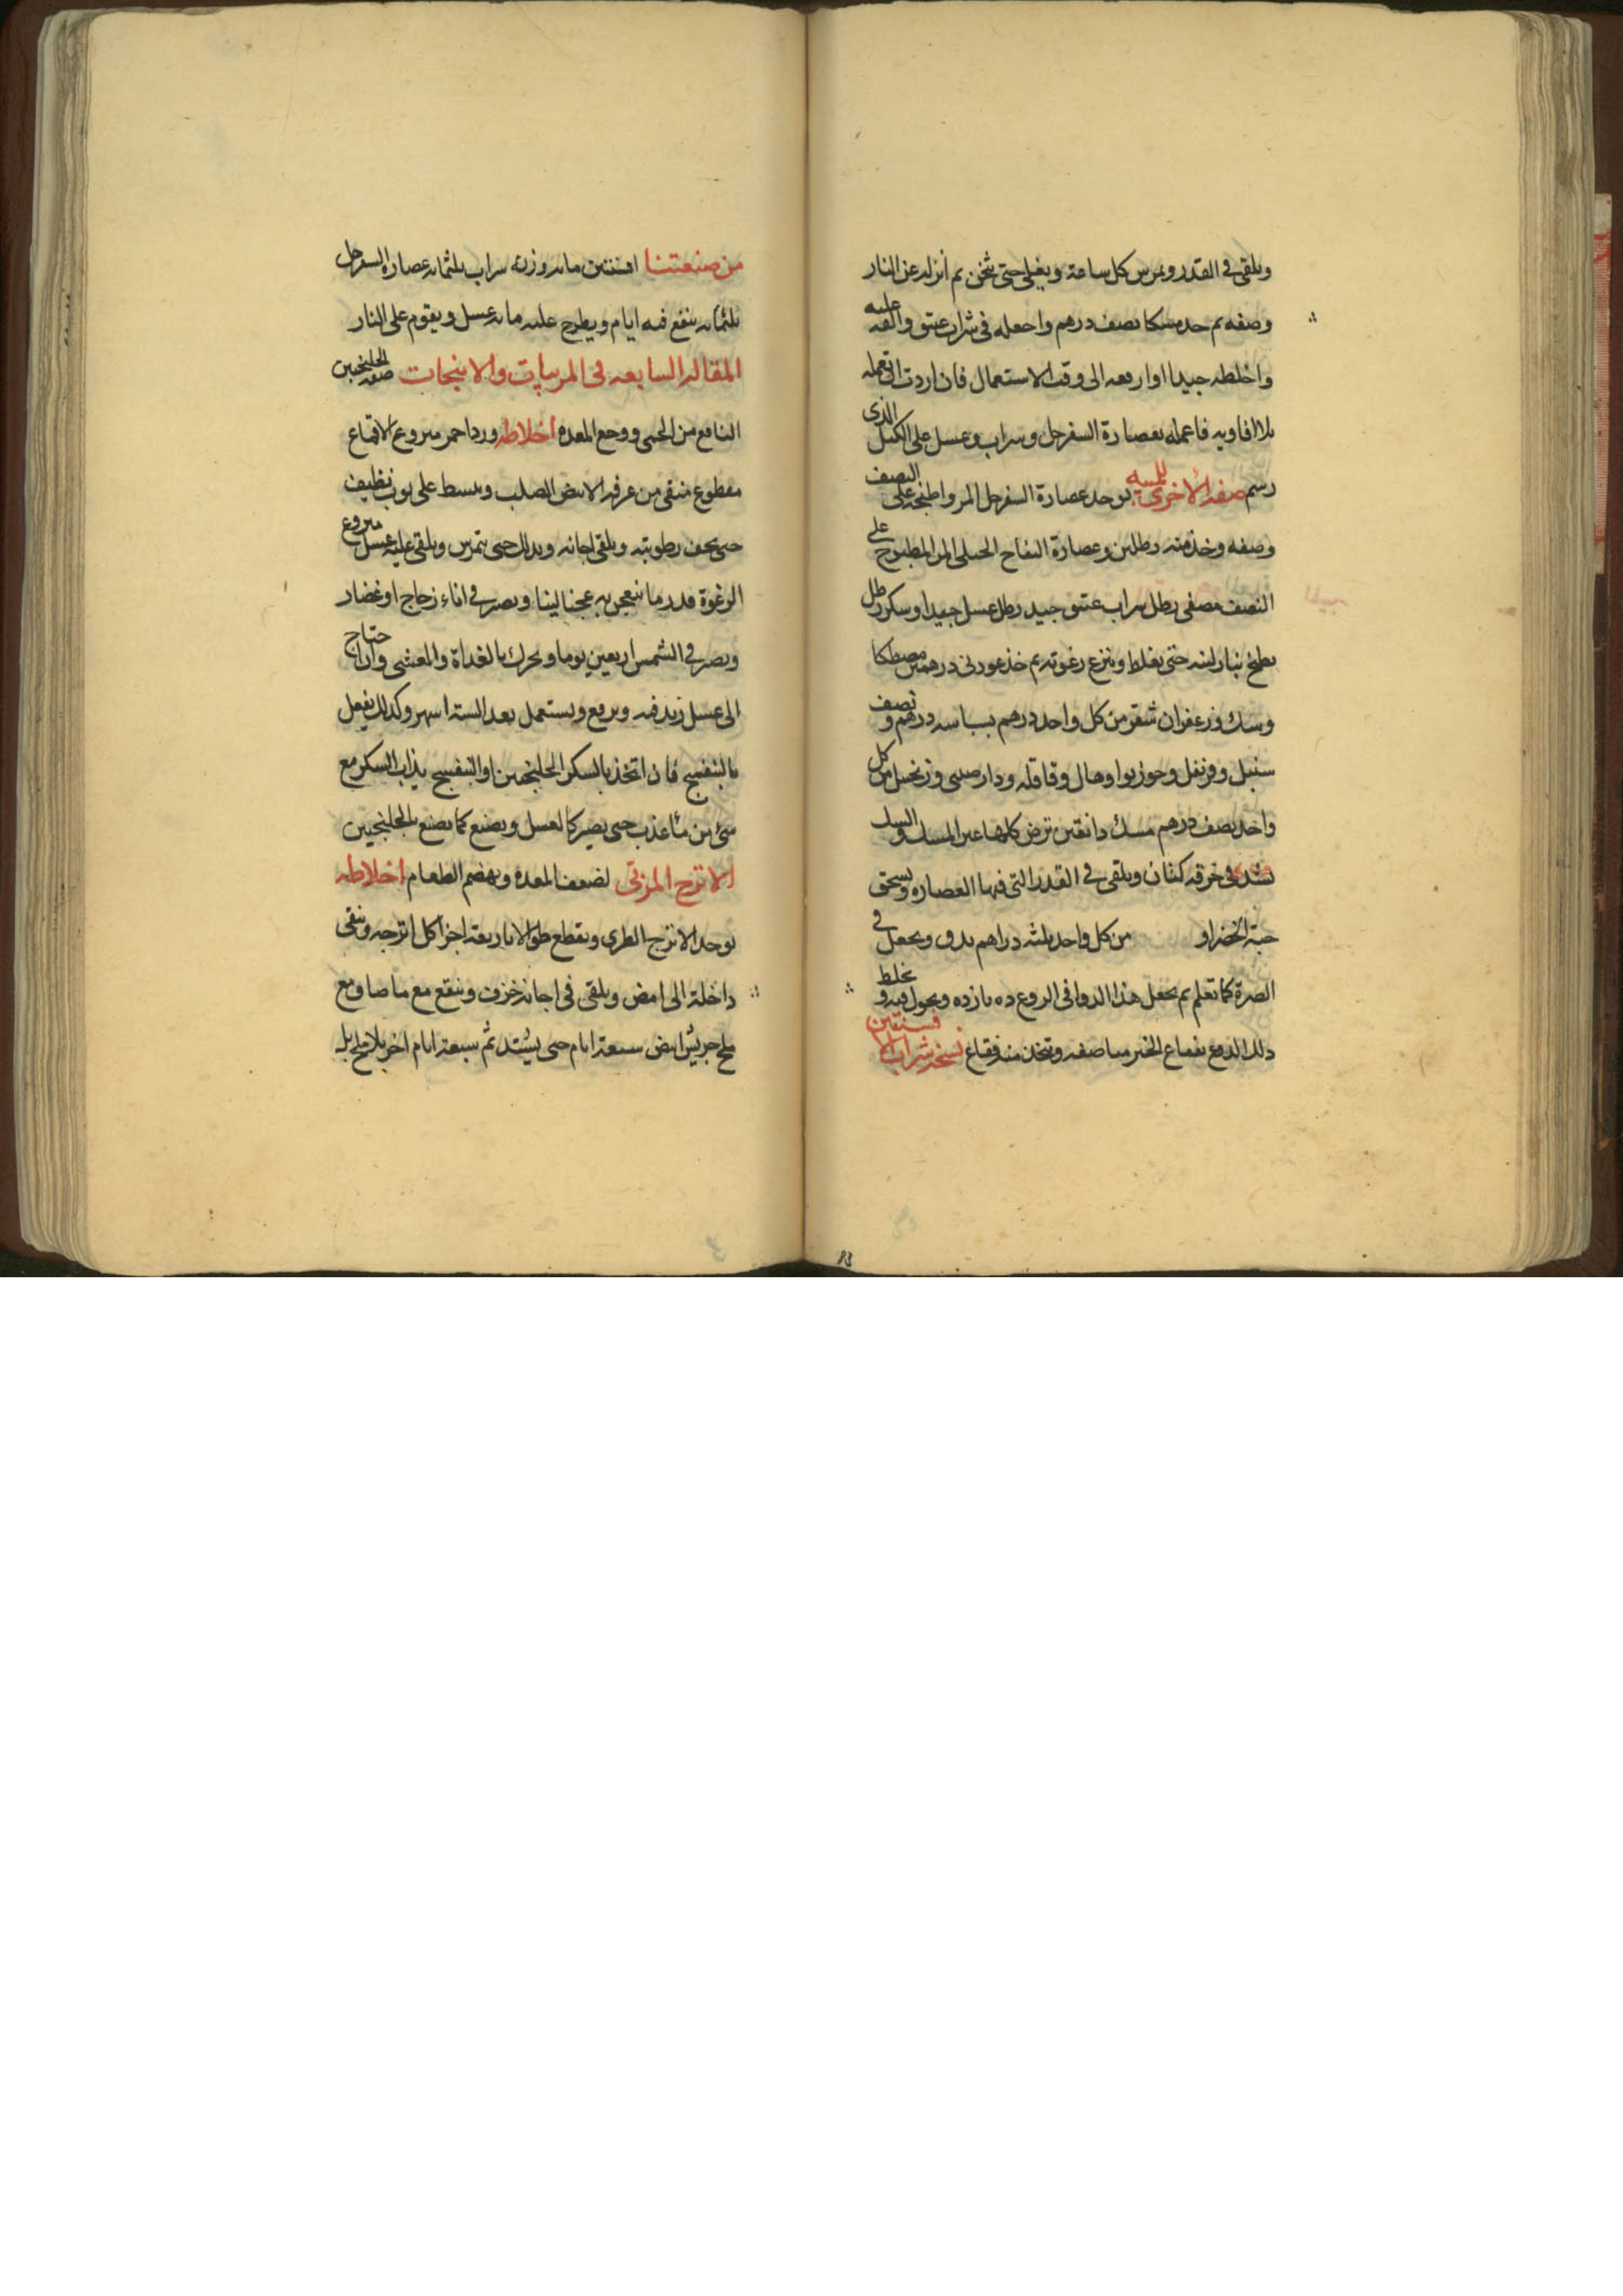 ويلقى في القدر ويمرس كل ساعة ويغلى حتى يثخن ثم أنزله عن النار
وصفه ثم خذ مسكا نصف درهم واجعله في شراب عتيق والقه عليه
واخلطه جيدا وارفعه الى وقت الاستعمال فان اردت ان تعمله
بلا افاويه فاعمله بعصارة السفرجل وشراب وعسل على الكيل الذي
رسم صفة الاخرى للميبه يوخذ عصارة السفرجل المر واطبخه على النصف
وصفه وخذ منه رطلين وعصارة التفاح الجبلي المر المطبوخ على
النصف مصفى رطل شراب عتيق جيد رطل عسل جيد او سكر رطل
يطبخ بنار لينه حتى يغلظ وينزع رغوته ثم خذ عود ني درهمين مصطكا
وسك وزعفران شقر من كل واحد درهم بسباسه درهم ونصف
سنبل وقرنفل وجوزبوا وهال وقاقله ودارصيني وزنجبيل من كل
واحد نصف درهم مسك دانقين ترض كلها غير المسك والسك
يشد في خرقه كتان ويلقى في القدر التي فيها العصاره ويسحق
حبة الخضرا و من كل واحد ثلثه دراهم يدق ويجعل في
الصرة كما تعلم ثم يجعل هذا الدوا في الدوغ ده يازده ويحول فيه ويخلط
ذلك الدوغ بفقاع الخبز مناصفه ويتخذ منه فقاع نسخة شراب الافسنتين
من صنعتنا افسنتين مايه وزنه شراب ثلثمايه عصارة السفرجل
ثلثمايه ينقع فيه ايام ويطرح عليه مايه عسل ويقوم على النار
المقاله السابعه في المربيات والانبجات صفه الجلنجبين
النافع من الحمى ووجع المعده اخلاطه ورد احمر منزوع الاقماع
مقطوع منقى من عرقه الابيض الصلب ويبسط على ثوب نظيف
حتى يجف رطوبته ويلقى اجانه ويدلك حتى يتمرس ويلقى عليه عسل منزوع
الرغوة قدر ما ينعجن به عجنا لينا ويصير في اناء زجاج او غضار
ويصير في الشمس اربعين يوما ويحرك بالغداة والعشي وان احتاج
الى عسل زيد فيه ويرفع ويستعمل بعد الستة اشهر وكذلك يفعل
بالبنفسج فان اتخذ بالسكر الجلنجبين او البنفسج يذاب السكر مع
شئ من ماء عذب حتى يصير كالعسل ويصنع كما يصنع بالجلنجبين
الاترج المربى لضعف المعده ويهضم الطعام اخلاطه
يوخذ الاترج الطري ويقطع طوالا باربعة اجزا كل اترجه وينقى
داخلة الى امض ويلقى في اجانه خزف وينقع مع ما صاف ومع
ملح جريش ابيض سبعة ايام حتى يشتد ثم سبعة ايام اخر بلا ملح بل